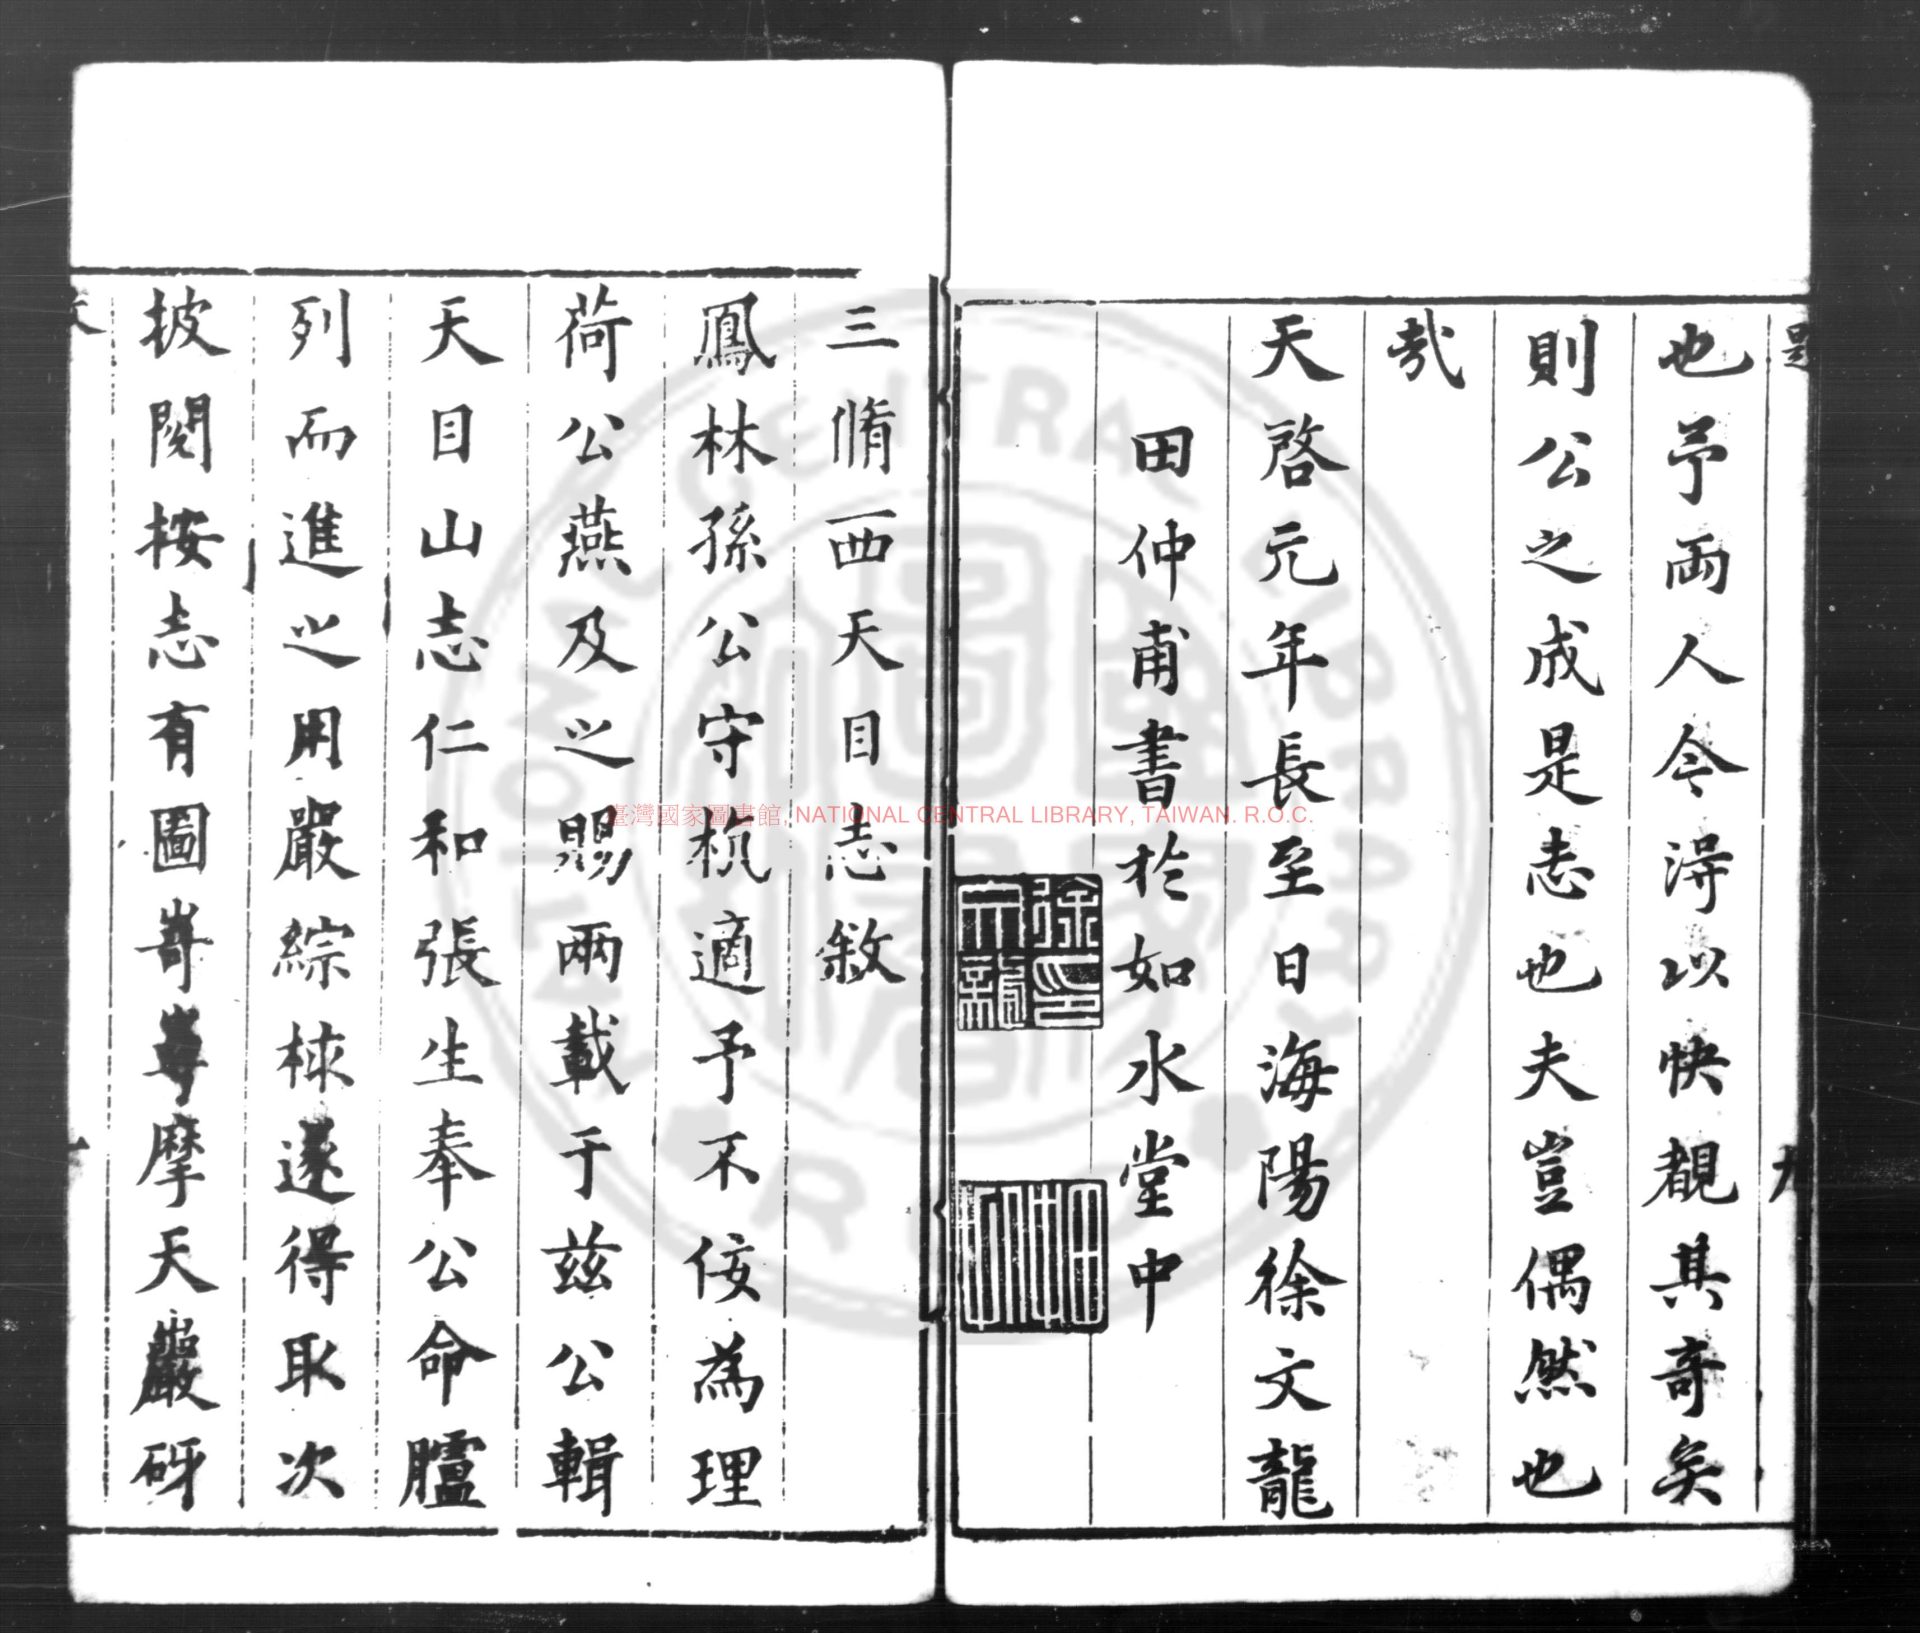 也予兩人今得以快覩其奇矣
則公之成是志也夫豈偶然也
哉
天啓元年長至日海陽徐文龍
田仲甫書於如水堂中
三脩西天目志敘
鳳林孫公守杭適予不佞為理
荷公燕及之賜兩載于茲公輯
天目山志仁和張生奉公命臚
列而進之用嚴綜核遂得取次
披閱按志有圖
摩天巖砑
臺灣國家圖書館, NATIONAL CENTRAL LIBRARY, TAIWAN. R.O.C.
NATIONAL CENTRAL LIBRARY